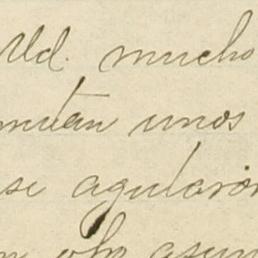 Ud. mucho
mutan unos
se agularon
otro asun